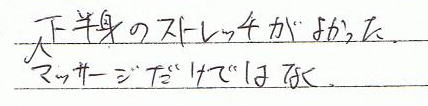 下半身のストレッチがよかった.
マッサージだけではなく